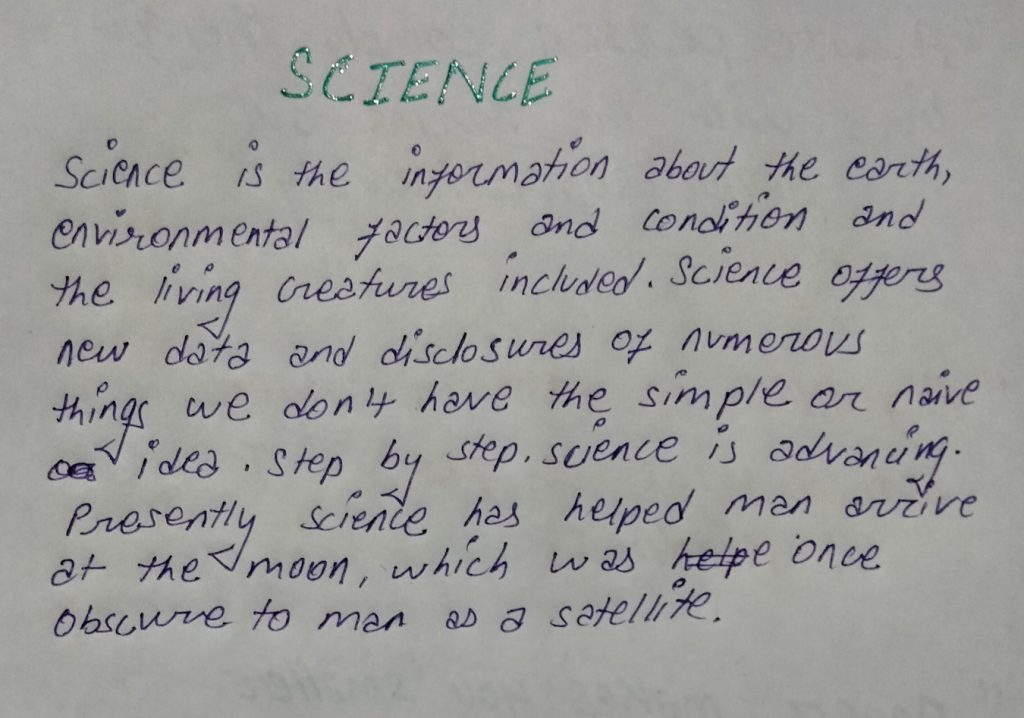 SCIENCE
Science is the information about the earth,
environmental factors and condition and
the living creatures included. Science offers
new data and disclosures of numerous
things we don't have the simple or naive
idea. Step by step, science is advancing.
Presently science has helped man arrive
at the moon, which was helpe once
obscure to man as a satellite.